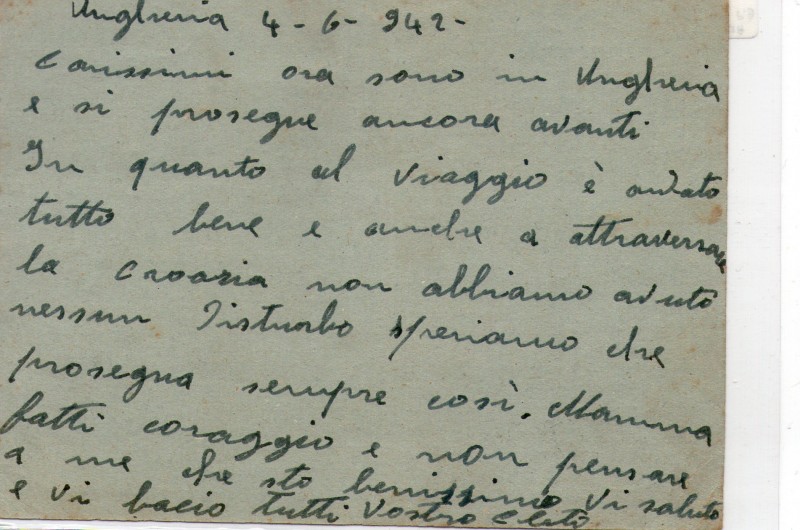 Ungheria 4-6-942-
Carissimi ora sono in Ungheria
e si prosegue ancora avanti
In quanto al viaggio è andato
tutto bene e anche a attraversare
la Croazia non abbiamo avuto
nessun disturbo speriamo che
prosegua sempre così. Mamma
fatti coraggio e non pensare
a me che sto benissimo vi saluto
e vi bacio tutti vostro Cleto